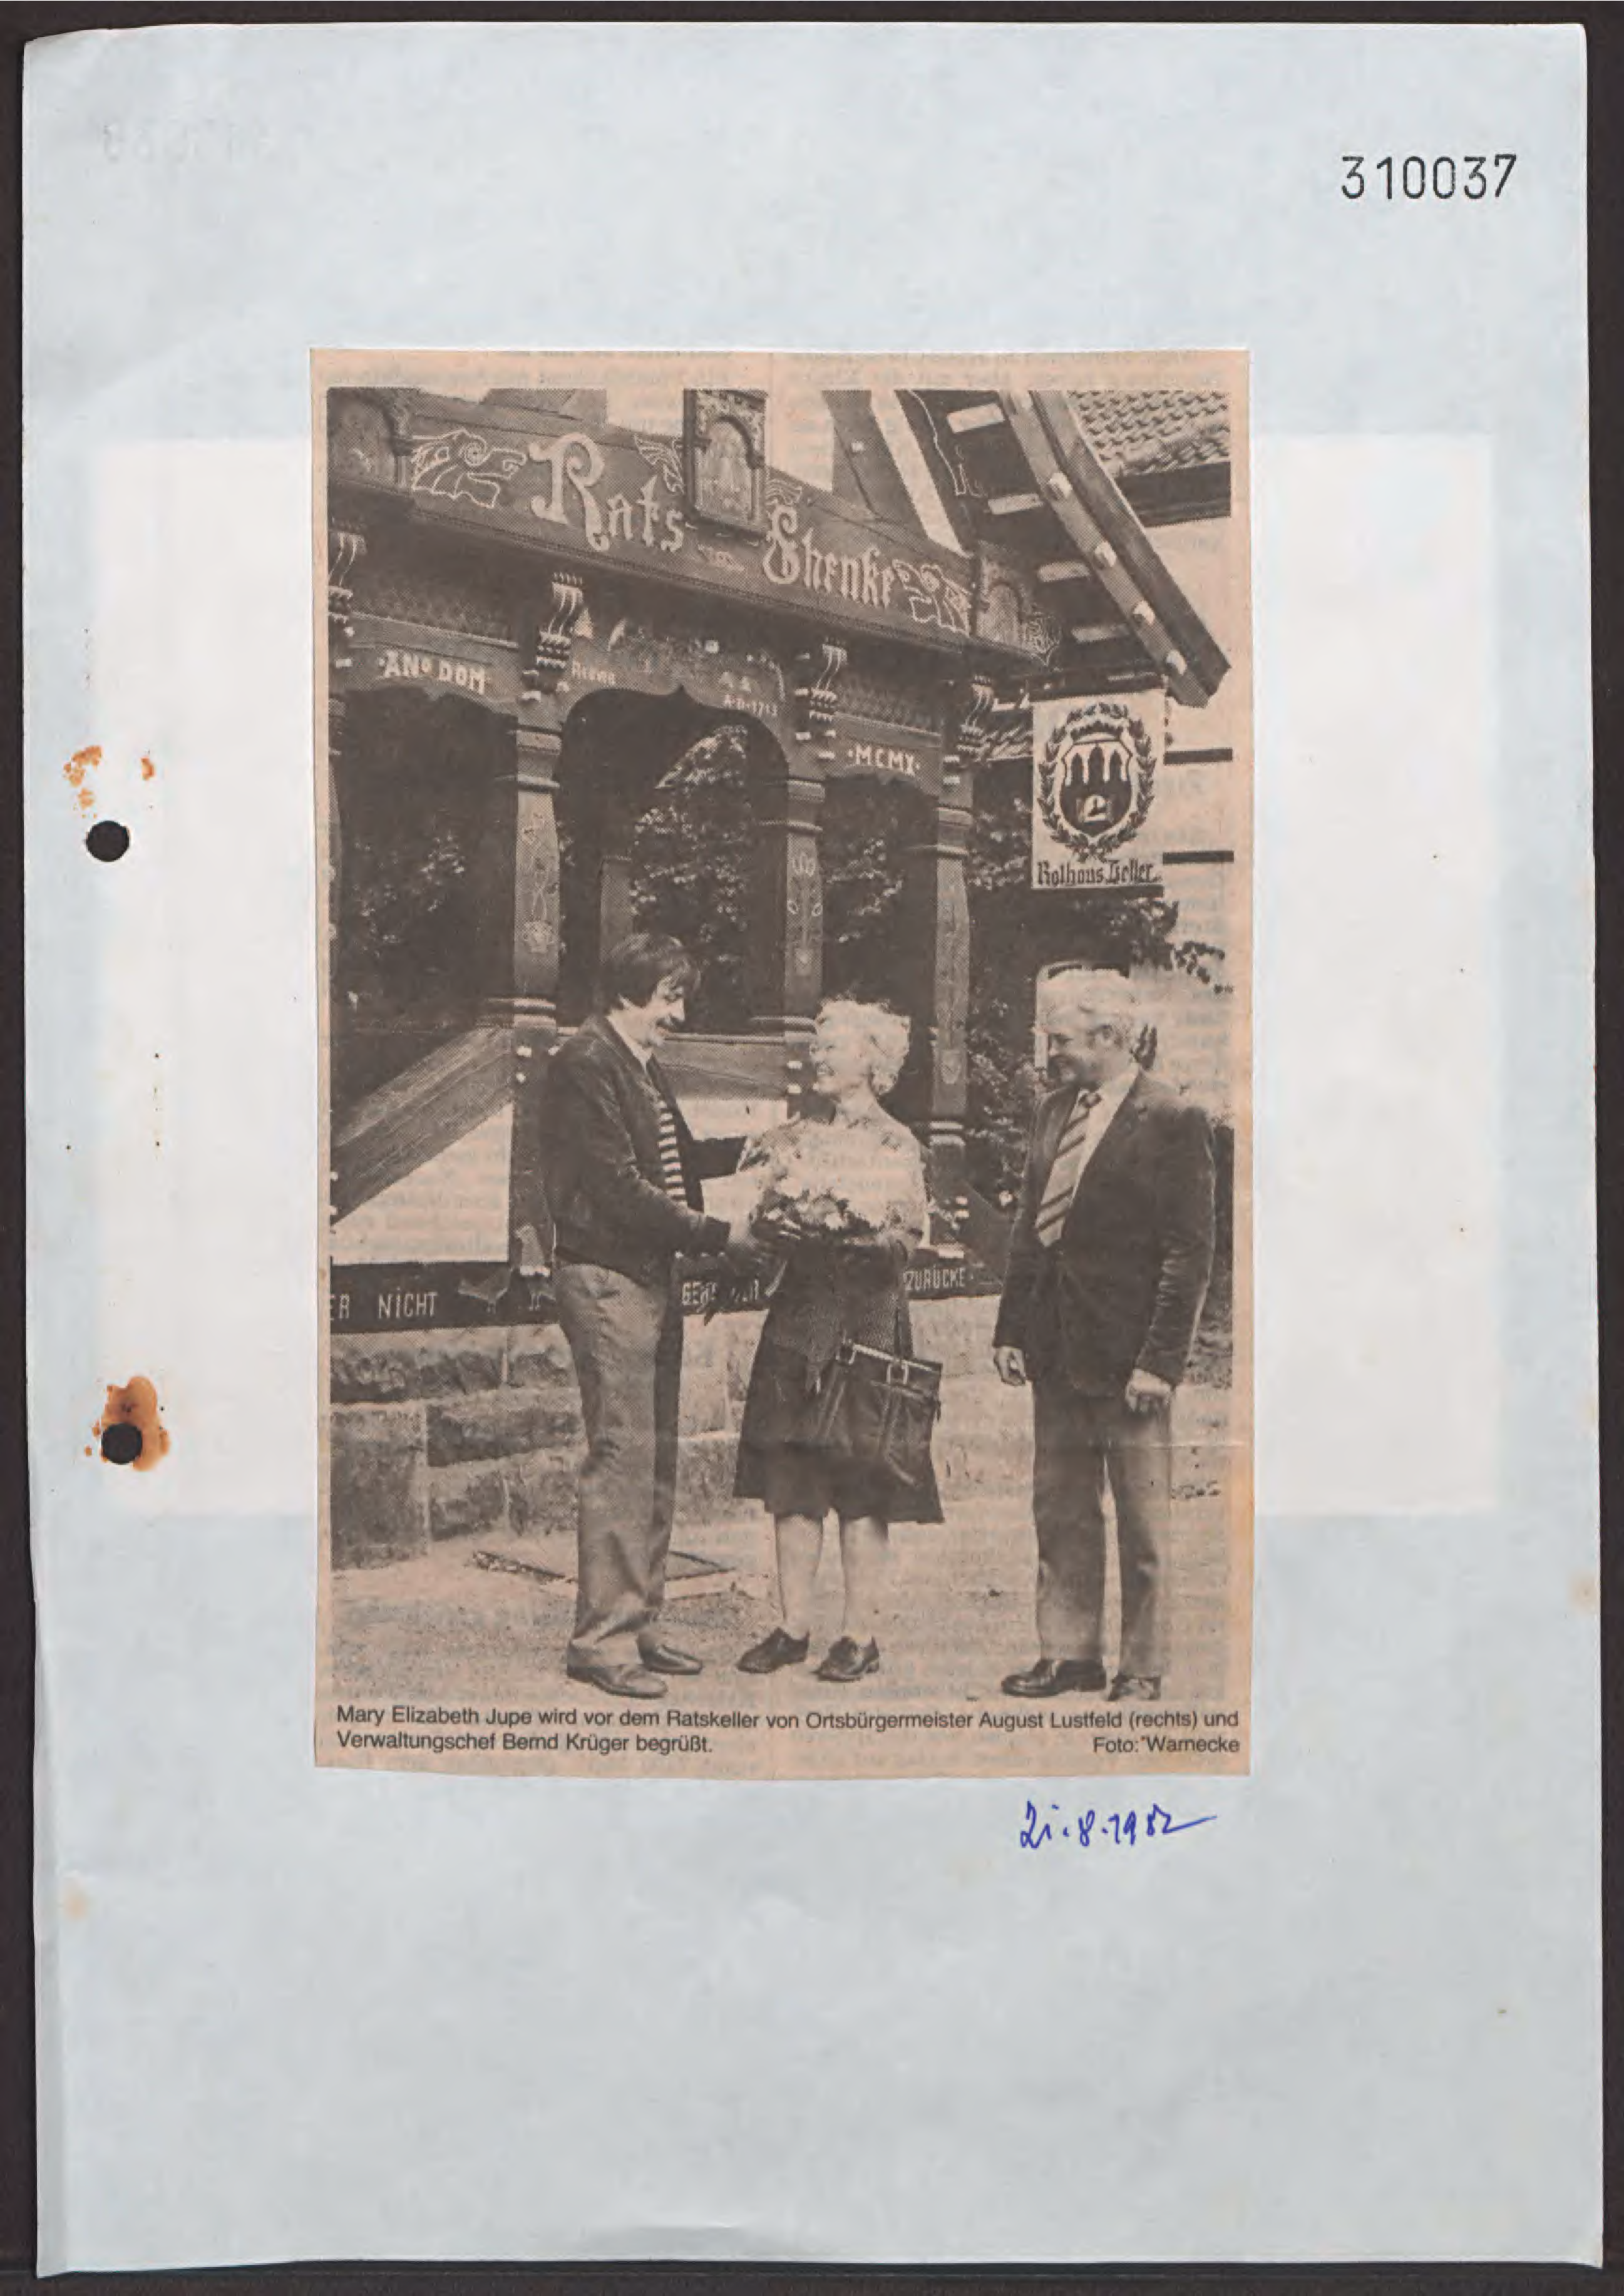 310037
Rats Shenke
·ANº DOM·
A·D·1713
·MCMX·
Rathaus Keller
ER NICHT
ZURÜCKE·
Mary Elizabeth Jupe wird vor dem Ratskeller von Ortsbürgermeister August Lustfeld (rechts) und
Verwaltungschef Bernd Krüger begrüßt. Foto: Warnecke
21.8.1982